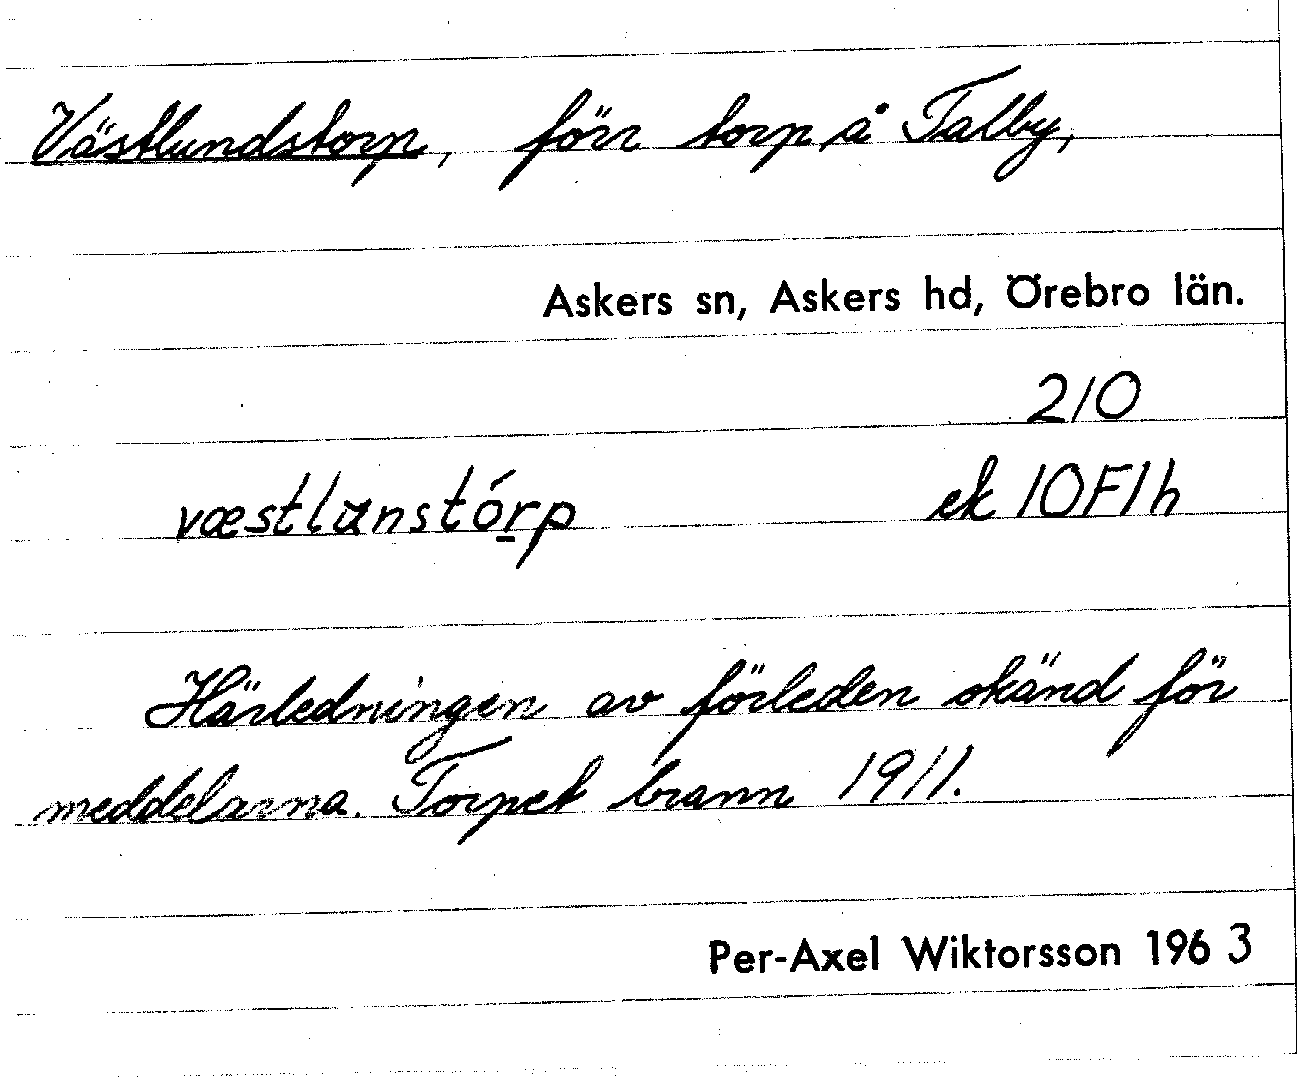 Västlundstorp, förr torp å Talby,
Askers sn, Askers hd, Örebro län.
210
væstlanstórp ek 10F1h
Härledningen av förleden okänd för
meddelarna. Torpet brann 1911.
Per-Axel Wiktorsson 1963